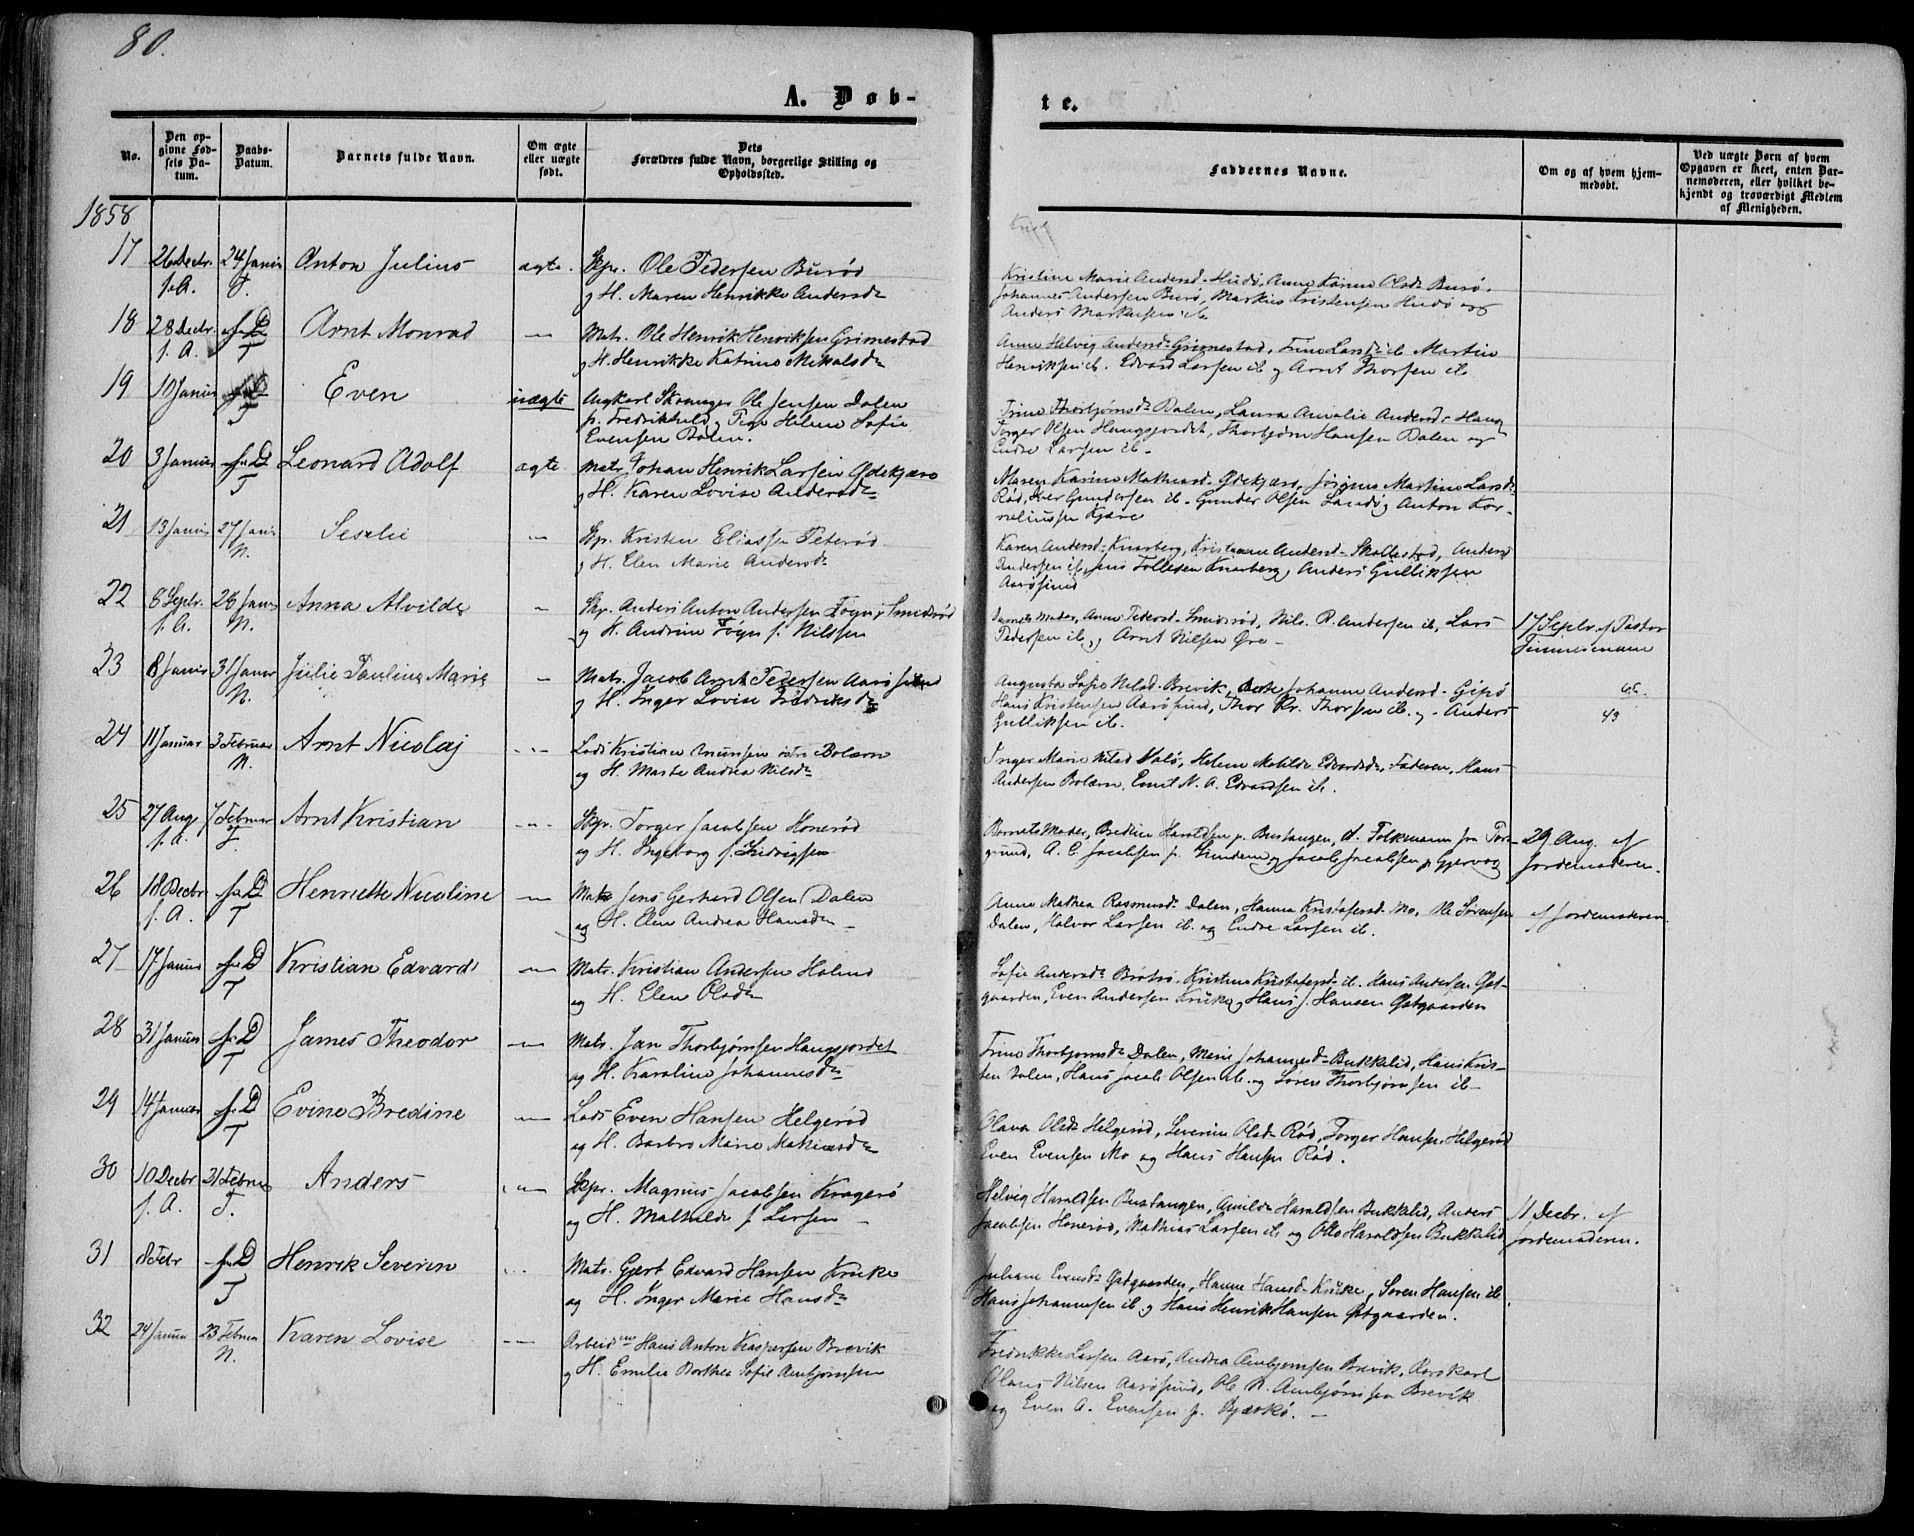 80.
A. Døb-
te.
No.
Den op-
givne Fød-
sels Da-
tum.
Daabs-
Datum.
Barnets fulde Navn.
Om ægte
eller uægte
født.
Dets
Forældres fulde Navn, borgerlige Stilling og
Opholdssted.
Faddernes Navne.
Om og af hvem hjem-
medøbt.
Ved uægte Børn af hvem
Opgaven er skeet, enten Bar-
nemoderen, eller hvilket be-
kjendt og troværdigt Medlem
af Menigheden.
1858
17 26 Decbr. f.A. 24 Januar T. Anton Julius ægte. Skpr. Ole Pedersen Burød
og H. Maren Henrikke Andersdr
Kristine Marie Andersd. Hudø, Anne Karine Olsdr Burø.
Johannes Andersen Burø, Markus Kristensen Hudø og
Anders Markussen ib.
18 28 Decbr. f.A. T Arnt Monrad — Matr. Ole Henrik Henriksen Grimestad
og H. Henrikke Katrine Mikalsdr
Anne Helvig Andersdr Grimestad, Trine Larsdr ib. Martin
Henriksen ib. Edvard Larsen ib og Arnt Thorsen ib.
19 10 Januar T Even uægte Ole Jensen Dalen
fr. Fredrikshald og Pige Helene Sofie
Evensen Dalen.
Trine Thorbjørnsdr Dalen, Laura Amalie Andersd.
Torger Olsen Haugsjordet, Thorbjørn Hansen Dalen og
Endre Larsen ib.
20 3 Januar T Leonard Adolf ægte Matr. Johan Henrik Larsen Ødekjær
og H. Karen Lovise Andersdr
Maren Karine Mathiasd. Ødekjær, Martine Larsdr
Rød, Iver Gundersen ib. Gunder Olsen Sandø og Anton Kor-
neliussen Kjære
21 13 Januar 27 Januar N. Seselie — Skpr. Kristen Eliassen Peterød
og H. Elen Marie Andersdr
Karen Andersdr Knarberg, Kristianne Andersd. Skallestad, Anders
Andersen ib, Jens Tollefsen Knarberg og Anders Gulliksen
Aarøsund
22 8 Septr. f.A. 28 Januar N. Anna Alvilde — Skpr. Anders Anton Andersen Føgn, Smidsrød
og H. Andrine Føgn f. Nilssen
Barnets Moder, Anne Pedersd. Smidsrød, Nils P. Andersen ib, Lars
Pedersen ib, og Arnt Nilsen Øre —
17 Septr. af Pastor
23 8 Januar 31 Januar N. Julie Pauline Marie — Matr. Jacob Arnt Pedersen Aarøsund
og H. Inger Lovise Fredriksdr
Augusta Sofie Nilsd. Brevik, Johanne Andersd. Gipø
Hans Kristensen Aarøsund, Thor Kr. Thorsen ib. og Anders
Gulliksen ib.
43
24 11 Januar 3 Februar N. Arnt Nicolaj — Lods Kristian østre Bolærn
og H. Marte Andrea Nilsdr
Inger Marie Nilsd Valø, Helene Matilde Edvardsdr, Faderen, Hans
Andersen Bolærn, Emil N. A. Edvardsen ib.
25 27 Aug. f.A. 7 Februar T. Arnt Kristian — Skpr. Torger Jacobsen Honerød
og H. Ingeborg f. Ludvigsen
Barnets Moder, Bredine Haraldsen p. Bustangen, A. Folkmann fra Tor-
grund, A. C. Jacobsen og Jacob Jacobsen p. Gjervog
29 Aug. af
Jordemoderen.
26 18 Decbr f.A. T Henriette Nicoline — Matr Jens Gerhard Olsen Dalen
og H. Elen Andrea Hansdr —
Anne Mathea Rasmusdr Dalen, Hanna Kristofersd. Mo, Ole Sørensen
Dalen, Halvor Larsen ib. og Endre Larsen ib.
af Jordemoderen
27 17 Januar T Kristian Edvard — Matr. Kristian Andersen Holmd
og H. Elen Olsdr
Sofie Andersdr Brøtsø, Kristine Kristofersdr ib. Hans Andersen Øst-
gaarden, Even Andersen Kruke og Hans J. Hansen Østgaarden
28 31 Januar T James Theodor — Matr. Jan Thorbjørnsen Haugsjordet
og H. Karoline Johannesdr
Trine Thorbjørnsdr Dalen, Marie Johannesd. Bukkelid, Hans Kris-
ten Dalen, Hans Jacob Olsen ib. og Søren Thorbjørnsen ib —
29 14 Januar T Evine Bredine — Lods Even Hansen Helgerød
og H. Barbro Marie Mathiasdr
Olava Olsdr Helgerød, Severine Olsdr Rød, Torger Hansen Helgerød
Even Evensen Mo og Hans Hansen Rød.
30 10 Decbr f.A. 21 Februar T. Anders — Skpr. Magnus Jacobsen Kragerø
og H. Mathilde f. Larsen —
Helvig Haraldsen Bustangen, Amilde Haraldsen Bukkelid, Anders
Jacobsen Honerød, Mathias Larsen ib og Otto Haraldsen Bukkelid
11 Decbr. af
Jordemoderen.
31 8 Febr T Henrik Severin Matr. Gjert Edvard Hansen Kruke
og H. Inger Marie Hansdr
Juliane Evensdr Østgaarden, Hanne Hansd. Kruke, Søren Hansen ib.
Hans Johannesen ib og Hans Henrik Hansen Østgaarden.
32 24 Januar 23 Februar N. Karen Lovise — Arbeidsm Hans Anton Kaspersen Brevik
og H. Emilie Dorthea Sofie Arnbjørnsen
Fredrikke Larsen Aarø, Andrea Arnbjørnsen Brevik,
Olaus Nilsen Aarøsund, Ole N. Arnbjørnsen Brevik
og Even A. Evensen p. Bjærkø. —